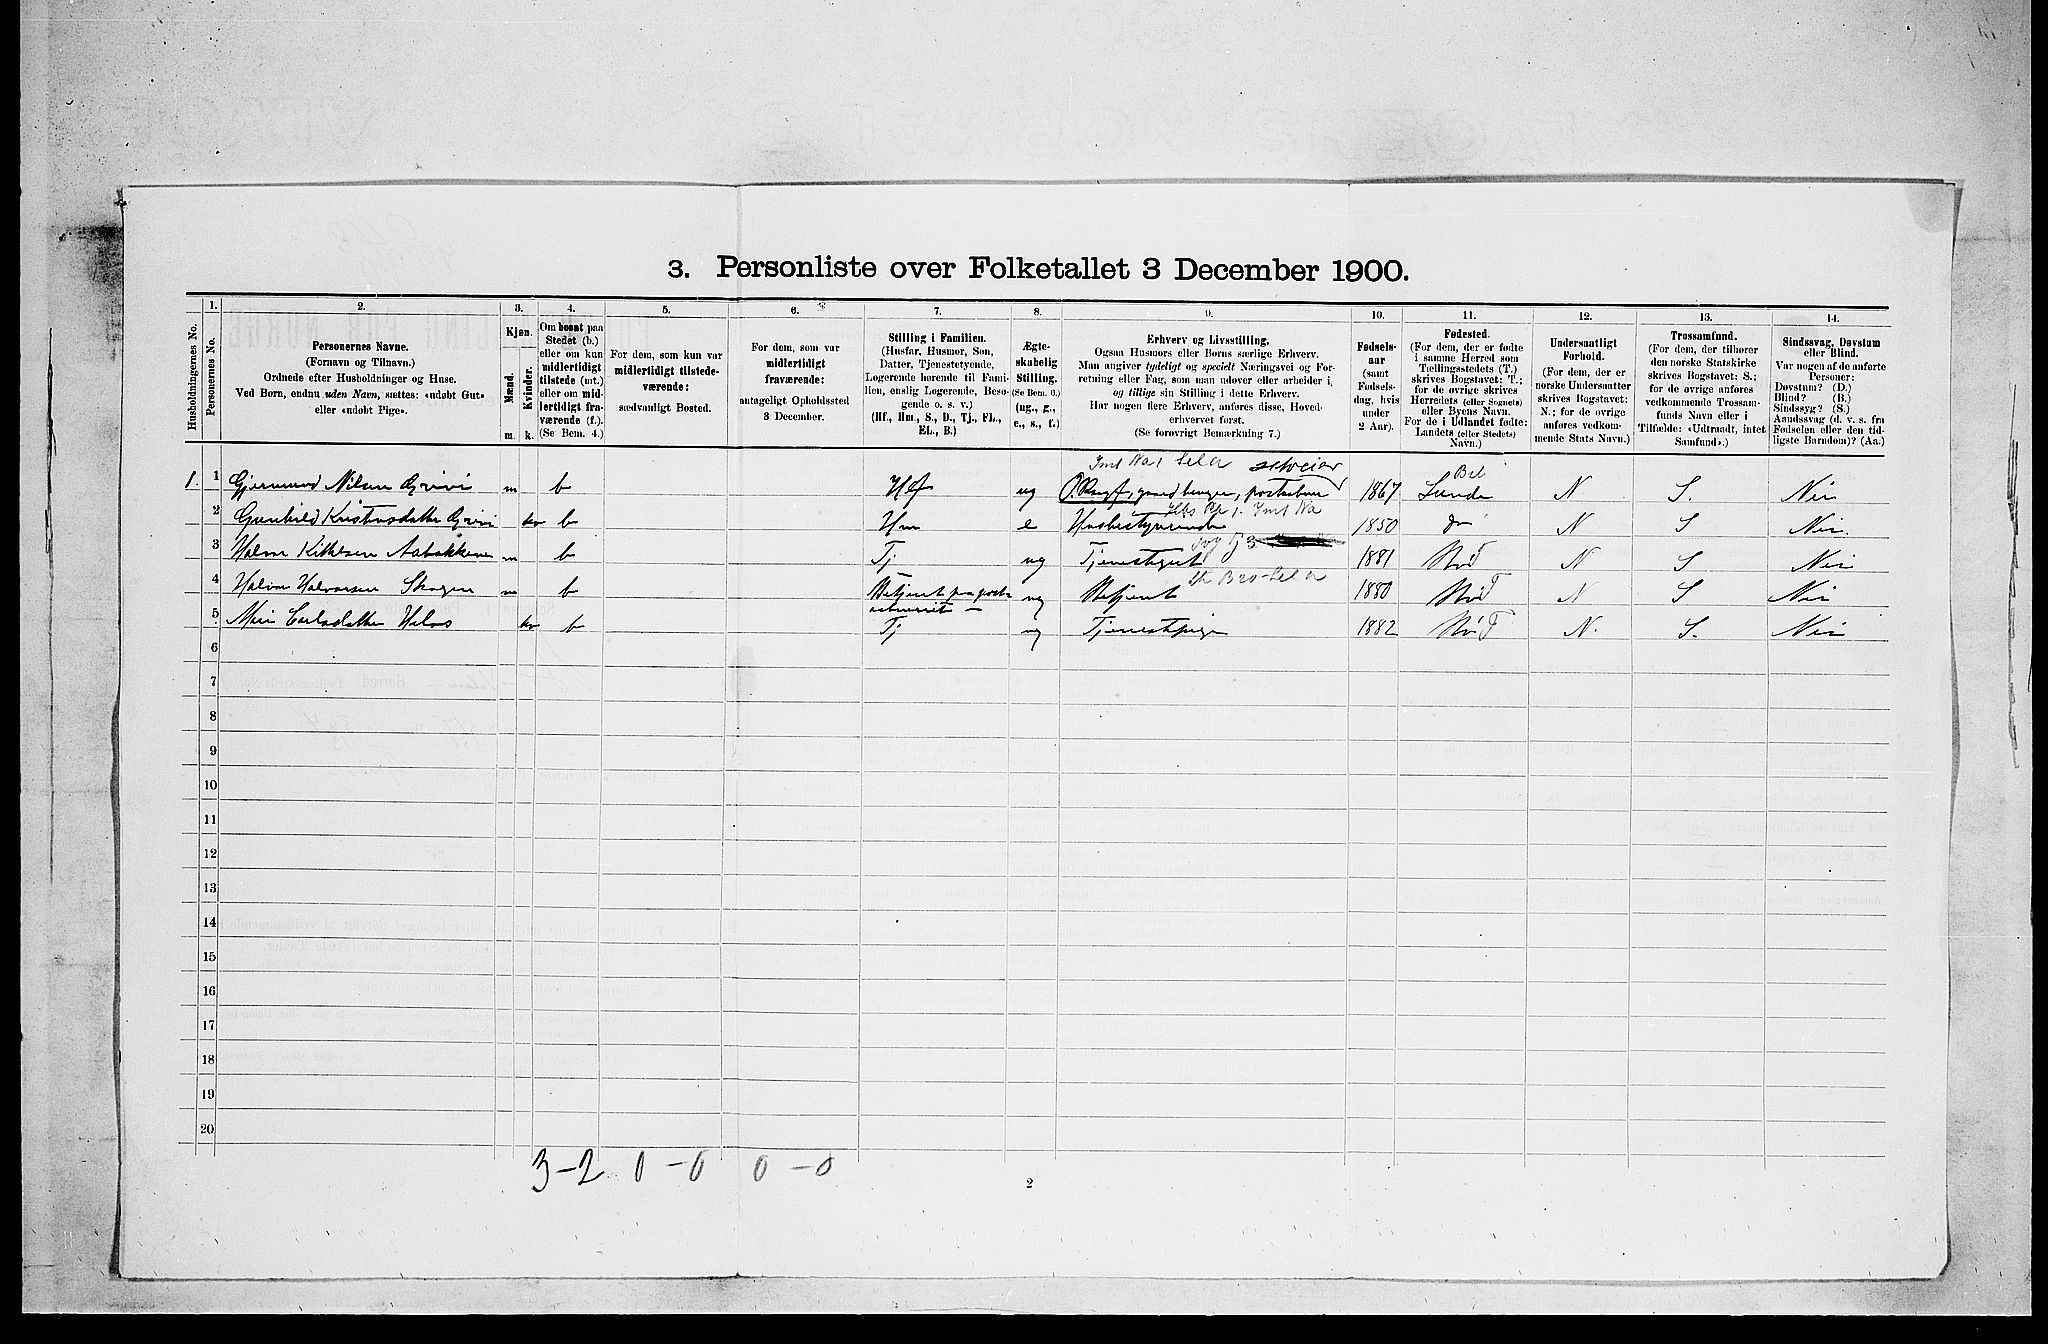 3. Personliste over Folketallet 3 December 1900.
Husholdningernes No.
1.
Personernes No.
2.
Personernes Navne.
(Fornavn og Tilnavn.)
Ordnede efter Husholdninger og Huse.
Ved Børn, endnu uden Navn, sættes: «udøbt Gut»
eller «udøbt Pige».
3.
Kjøn.
Mænd.
Kvinder.
m. k.
4.
Om bosat paa
Stedet (b.)
eller om kun
midlertidigt
tilstede (mt.)
eller om mid-
lertidigt fra-
værende (f.).
(Se Bem. 4.)
5.
For dem, som kun var
midlertidigt tilstede-
værende:
sædvanligt Bosted.
6.
For dem, som var
midlertidigt
fraværende:
antageligt Opholdssted
3 December.
7.
Stilling i Familien.
(Husfar, Husmor, Søn,
Datter, Tjenestetyende,
Logerende hørende til Fami-
lien, enslig Logerende, Besø-
gende o. s. v.)
(Hf., Hm., S., D., Tj., Fl.,
El., B.)
8.
Ægte-
skabelig
Stilling.
(Se Bem. 6.)
(ug., g.,
e., s., f.)
9.
Erhverv og Livsstilling.
Ogsaa Husmors eller Børns særlige Erhverv.
Man angiver tydeligt og specielt Næringsvei og For-
retning eller Fag, som man udøver eller arbeider i,
og tillige sin Stilling i dette Erhverv.
Har nogen flere Erhverv, anføres disse, Hoved-
erhvervet først.
(Se forøvrigt Bemærkning 7.)
10.
Fødsels-
aar
(samt
Fødsels-
dag, hvis
under
2 Aar).
11.
Fødested.
(For dem, der er fødte
i samme Herred som
Tællingsstedets (T.)
skrives Bogstavet: T.;
for de øvrige skrives
Herredets (eller Sognets)
eller Byens Navn.
For de i Udlandet fødte:
Landets (eller Stedets)
Navn.)
12.
Undersaatligt
Forhold.
(For dem, der er
norske Undersaatter
skrives Bogstavet:
N.; for de øvrige
anføres vedkom-
mende Stats Navn.)
13.
Trossamfund.
(For dem, der tilhører
den norske Statskirke
skrives Bogstavet: S.;
for de øvrige anføres
vedkommende Trossam-
funds Navn eller i
Tilfælde: «Udtraadt, intet
Samfund».)
14.
Sindssvag, Døvstum
eller Blind.
Var nogen af de anførte
Personer:
Døvstum? (D.)
Blind? (B.)
Sindssyg? (S.)
Aandssvag (d. v. s. fra
Fødselen eller den tid-
ligste Barndom)? (Aa.)
selveier Bel
1. 1 Nilsen m b Hf ug gaardbruger, 1867 Lunde N S. Nei
2 Gunhild kv b Hm e Husbestyrerinde 1850 do N S Nei.
3 Halvor m b Tj ug Tjenestgut 1881 T N S Nei
4 Halvor Halvorsen Skogen m b Betjent paa post- ug Betjent 1880 T N S Nei
5 kv b Tj ug Tjenestpige 1882 T N. S. Nei
6
7
8
9
10
11
12
13
14
15
16
17
18
19
20
3-2 0-0 0-0
2